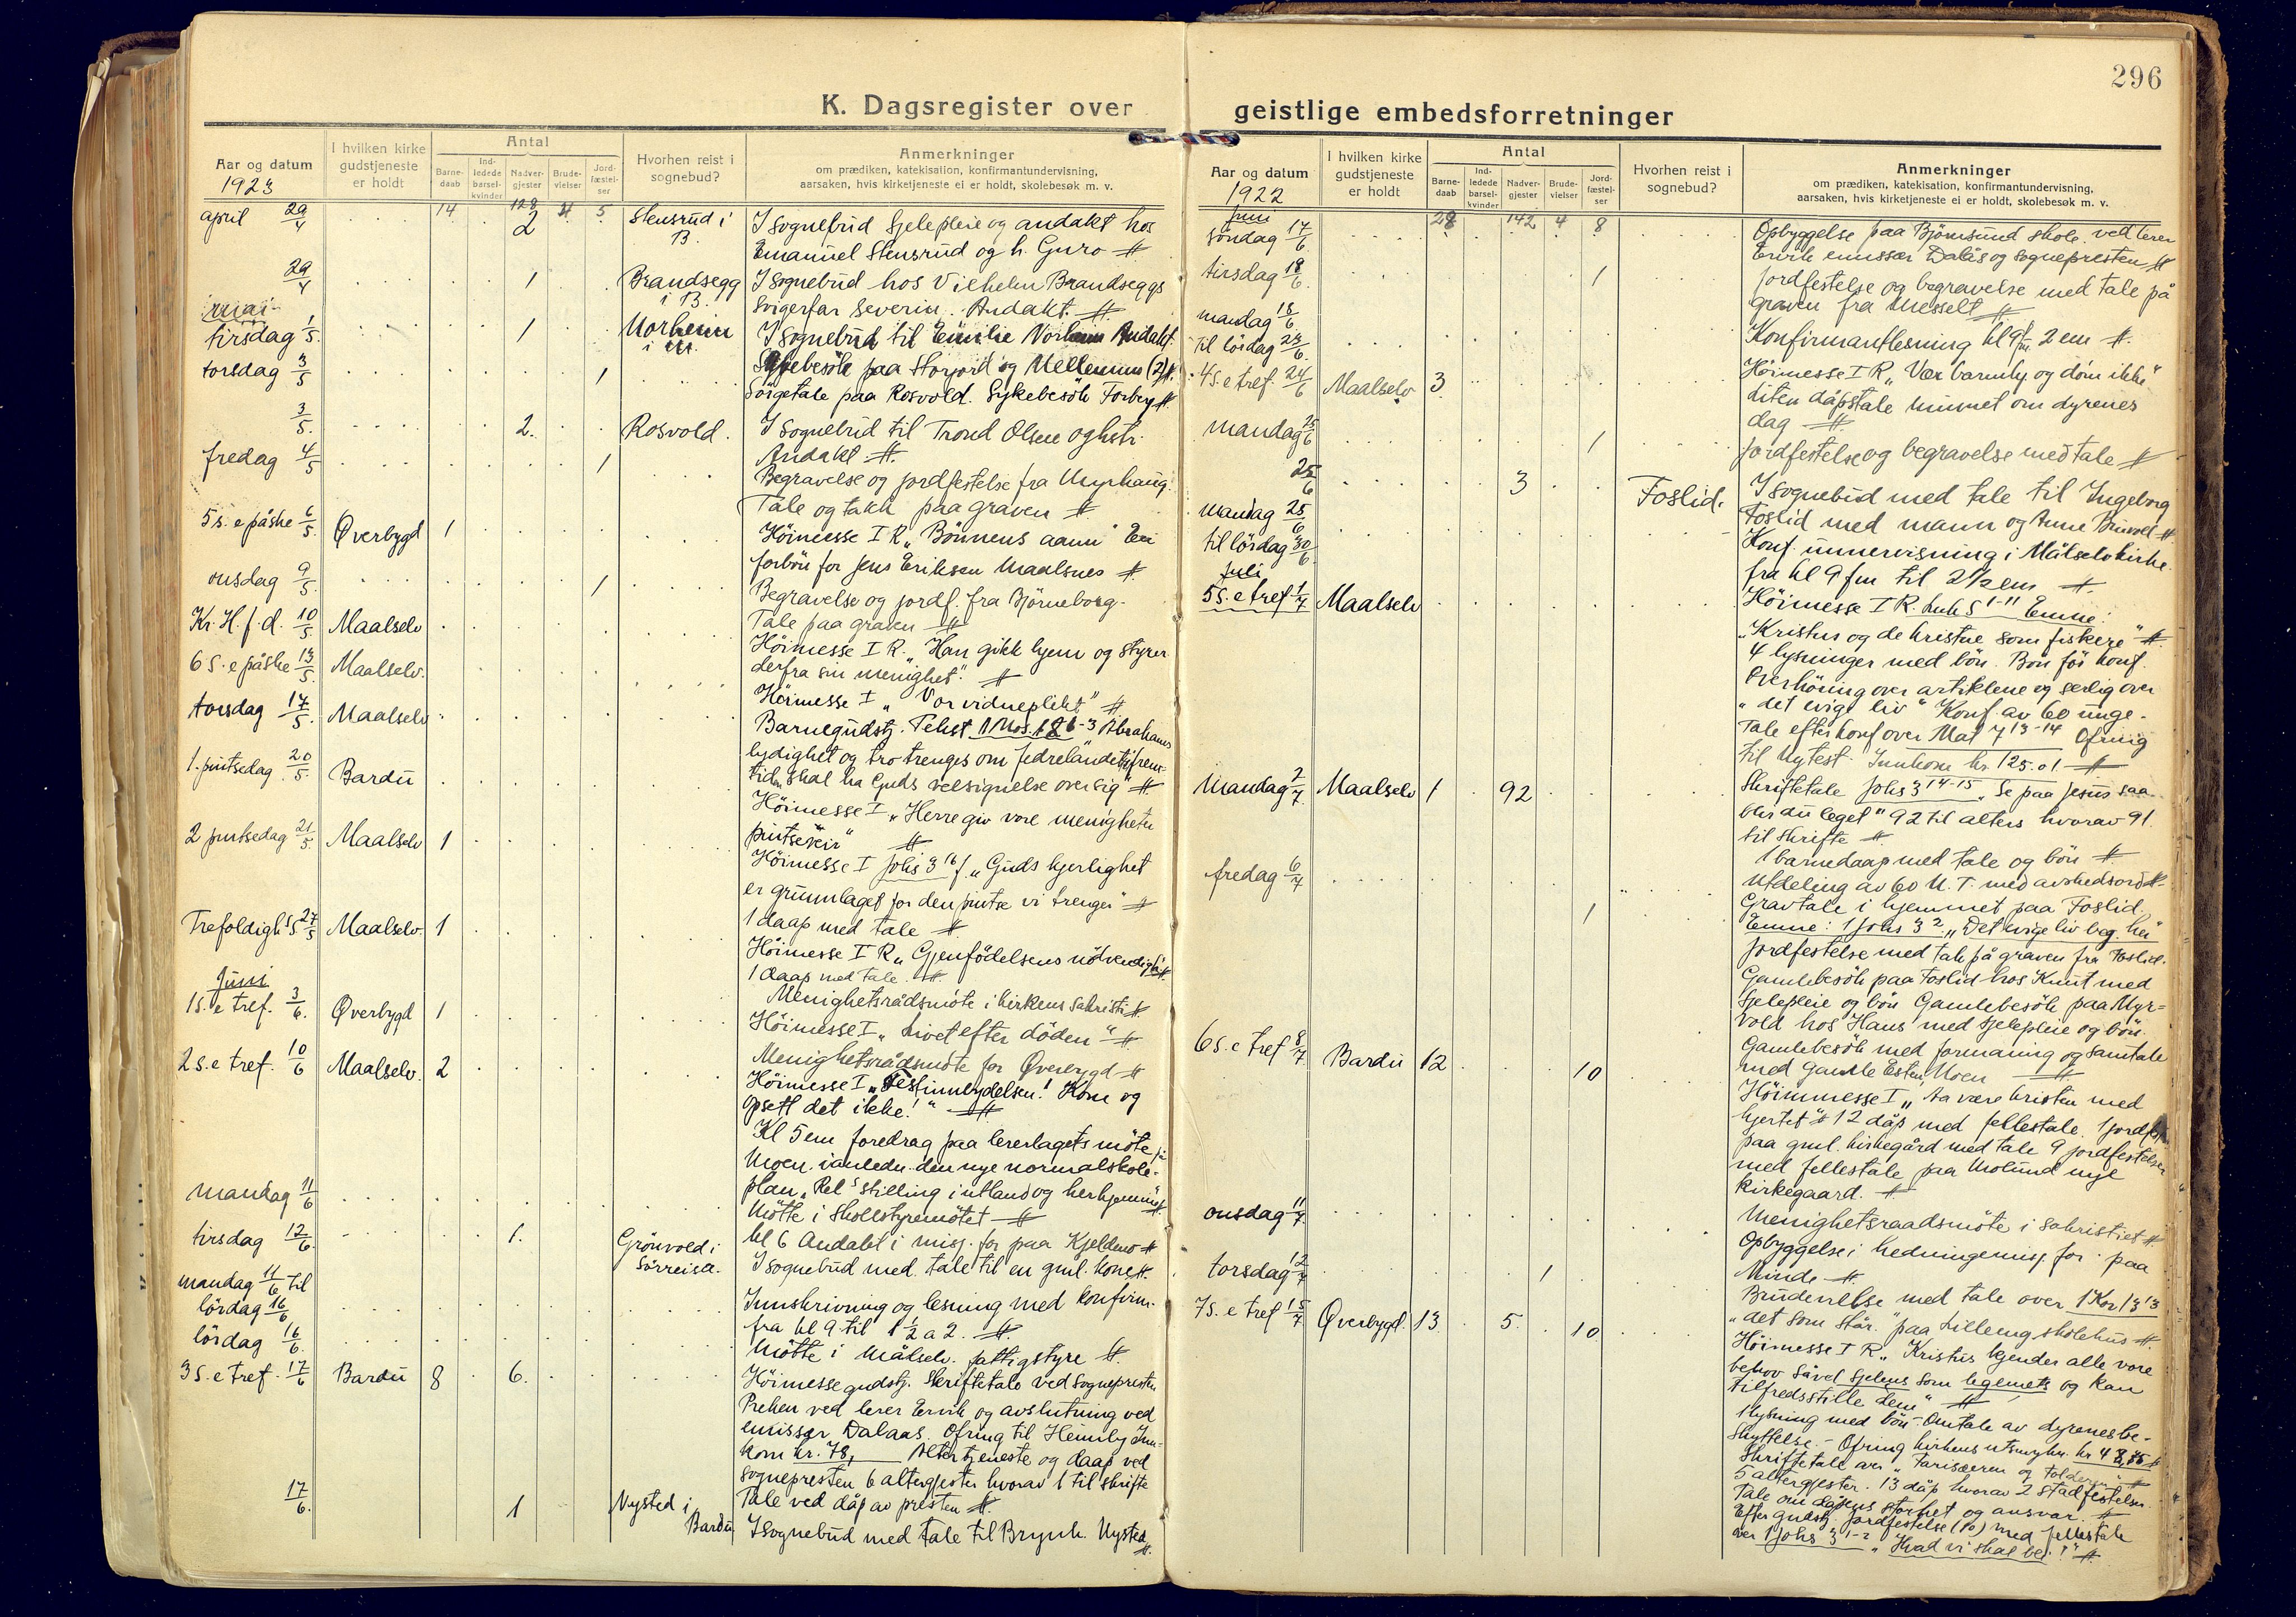 296
K. Dagsregister over
geistlige embedsforretninger
Aar og datum
1923
I hvilken kirke
gudstjeneste
er holdt
Antal
Barne-
daab
Ind-
ledede
barsel-
kvinder
Nadver-
gjester
Brude-
vielser
Jord-
fæstel-
ser
Hvorhen reist i
sognebud?
Anmerkninger
om prædiken, katekisation, konfirmantundervisning,
aarsaken, hvis kirketjeneste ei er holdt, skolebesøk m. v.
14 128 5
april 29/4 2 Stensrud i I sognebud Sjelepleie og andakt hos
B. Emanuel Stensrud og h. Guro #
29/4 1 Brandsegg I sognebud hos Vilhelm Brandseggs
i B. Svigerfar Severin. Andakt. #
mai
tirsdag 1/5 1 I sognebud til Emilie Andakt
torsdag 3/5 1 paa Storjord og (2) #
Sörgetale paa Rosvold. Sykebesök #
3/5 2. Rosvold. I sognebud til Trond Olsen og
Andakt #
fredag 4/5 1 Begravelse og jordfestelse fra Myrhaug.
Tale og takk paa graven #
5 s. e påske 6/5 Øverbygd 1 Höimesse I R „Bönnens aann"
forbön for Jens Eriksen Maalsnes #
onsdag 9/5 1 Begravelse og jordf. fra Björneborg.
Tale paa graven #
Kr. H. f. d. 10/5 Maalselv Höimesse I R. „Han gikk hjem og styrer
derfra sin menighet". #
6 S. e påske 13/5 Maalselv. Höimesse I „Vor vidneplikt" #
torsdag 17/5 Maalselv Barnegudstj. Tekst Abrahams
lydighet og tro trenges om fedrelandet i frem-
tiden skal ha Guds velsignelse over sig" #
1. pintsedag 20/5 Bardu Höimesse I „Herre giv vore menigheter
pintseveir" #
2 pintsedag 21/5 Maalselv 1 Höimesse I Johs 3 16 f „Guds kjerlighet
er grunnlaget for den pintse vi trenger" #
1 daap med tale #
Trefoldigh S 27/5 Maalselv. 1 Höimesse I R „Gjenfödelsens nödvendigh. #
1 daap med tale. #
Menighetsrådsmöte i kirkens sakristi #
Juni
1 S. e tref. 3/6 Øverbygd 1 Höimesse I „Livet efter döden" #
Menighetsrådsmöte for Øverbygd #
2 s. e tref. 10/6 Maalselv. 2 Höimesse I „Festinnbydelsen! Kom og
opsett det ikke!" #
Kl 5 em foredrag paa lærerlagets möte på
Moen. i anledn. den nye normalskole-
plan „Rel s stilling i utland og herhjemme" #
mandag 11/6 Mötte i skolestyremötet #
kl 6 Andakt i misj. for paa Kjeldmo #
tirsdag 12/6 1. Grönvold i I sognebud med tale til en gml. kone #
Sörreisa.
mandag 11/6 til Innskrivning og lesning med konfirm.
lördag 16/6 fra kl 9 til 1 1/2 a 2. #
lördag 16/6 Mötte i Målselv. fattigstyre #.
3 S. e tref. 17/6 Bardu 8 6. Höimessegudstj. Skriftetale ved sognepresten
Preken ved lerer Ervik og avslutning ved
emissær Dalaas. Ofring til Heimly Inn-
kom kr. 78,— Altertjeneste og daap ved
sognepresten 6 altergjester hvorav 1 til skrifte
Tale ved dåp av presten #.
17/6 1 Nysted i Bardu I sognebud med tale til Brynh. Nysted #
Aar og datum
1922
I hvilken kirke
gudstjeneste
er holdt
Antal
Barne-
daab
Ind-
ledede
barsel-
kvinder
Nadver-
gjester
Brude-
vielser
Jord-
fæstel-
ser
Hvorhen reist i
sognebud?
Anmerkninger
om prædiken, katekisation, konfirmantundervisning,
aarsaken, hvis kirketjeneste ei er holdt, skolebesøk m. v.
28 142 4 8
Juni
söndag 17/6 Opbyggelse paa Björnsund skole. ved lerer
Ervik emissær Dalås og sognepresten #
tirsdag 19/6 1 Jordfestelse og begravelse med tale på
graven fra Messelt #
mandag 18/6
til lördag 23/6 Konfirmantlesning kl 9 fm 2 em #.
4 S. e tref. 24/6 Maalselv 3 Höimesse I R „Vær barmhj. og döm ikke"
Liten dåpstale Minnet om dyrenes
dag #
mandag 25/6 1 Jordfestelse og begravelse med tale #
25/6 3 Foslid. I sognebud med tale til Ingeborg
Foslid med mann og Anne #
mandag 25/6
til lördag 30/6 Konf. unnervisning i Målselv kirke.
fra kl 9 fm til 2 1/2 em #.
Juli
5 S. e tref 1/7 Maalselv Höimesse I R. Luk 5 1-11 Emne:
„Kristus og de kristne som fiskere" #
4 lysninger med bön. Bön för konf.
Overhöring over artiklene og serlig over
„det evige liv" Konf. av 60 unge.
Tale efter konf over Mat 7 13-14 Ofring
til Nytest. Innkom kr. 125.01 #
Mandag 2/7 Maalselv 1 92 Skriftetale Johs 3 14-15 „Se paa Jesus saa
blir du leget" 92 til alters hvorav 91
til skrifte #
1 barnedaap med tale og bön #
Utdeling av 60 N. T. med avskedsord #
fredag 6/7 1 Gravtale i hjemmet paa Foslid.
Emne: 1 Johs 3 2 „Det evige liv beg. her"
Jordfestelse med tale på graven fra Foslid.
Gamlebesök paa Foslid hos Knut med
sjelepleie og bön Gamlebesök paa Myr-
vold hos Hans med sjelepleie og bön.
Gamlebesök med formaning og samtale
med gamle Esten Moen #
6 S. e tref 8/7 Bardu 12 10 Höimmesse I „Aa være kristen med
hjertet" # 12 dåp med fellestale. 1 jordfest
paa gml. kirkegård med tale 9 jordfestelser
med fellestale paa Molund nye
kirkegaard. #
Menighetsraadsmöte i sakristiet #.
onsdag 11/7 Opbyggelse i hedningemisj. for. paa
Minde #.
torsdag 12/7 1 Brudevielse med tale over 1 Kor 13 13
„det som står." paa Lilleeng skolehus #.
7 S. e tref 15/7 Øverbygd. 13 5. 10 Höimesse I R „Kristus kjender alle vore
behov såvel sjelens som legemets og kan
tilfredsstille dem" #
1 lysning med bön – Omtale av dyrenesbe-
skyttelse. – Ofring kirkens utsmykn.
Skriftetale over „Fariseeren og tolderen" #
5 altergjester. 13 dåp hvorav 2 stadfestelser.
Tale om dåpens storhet og ansvar. #
Efter gudstj. jordfestelse (10) med fellestale
over 1 Johs 3 1-2 „Hvad vi skal bli!" #